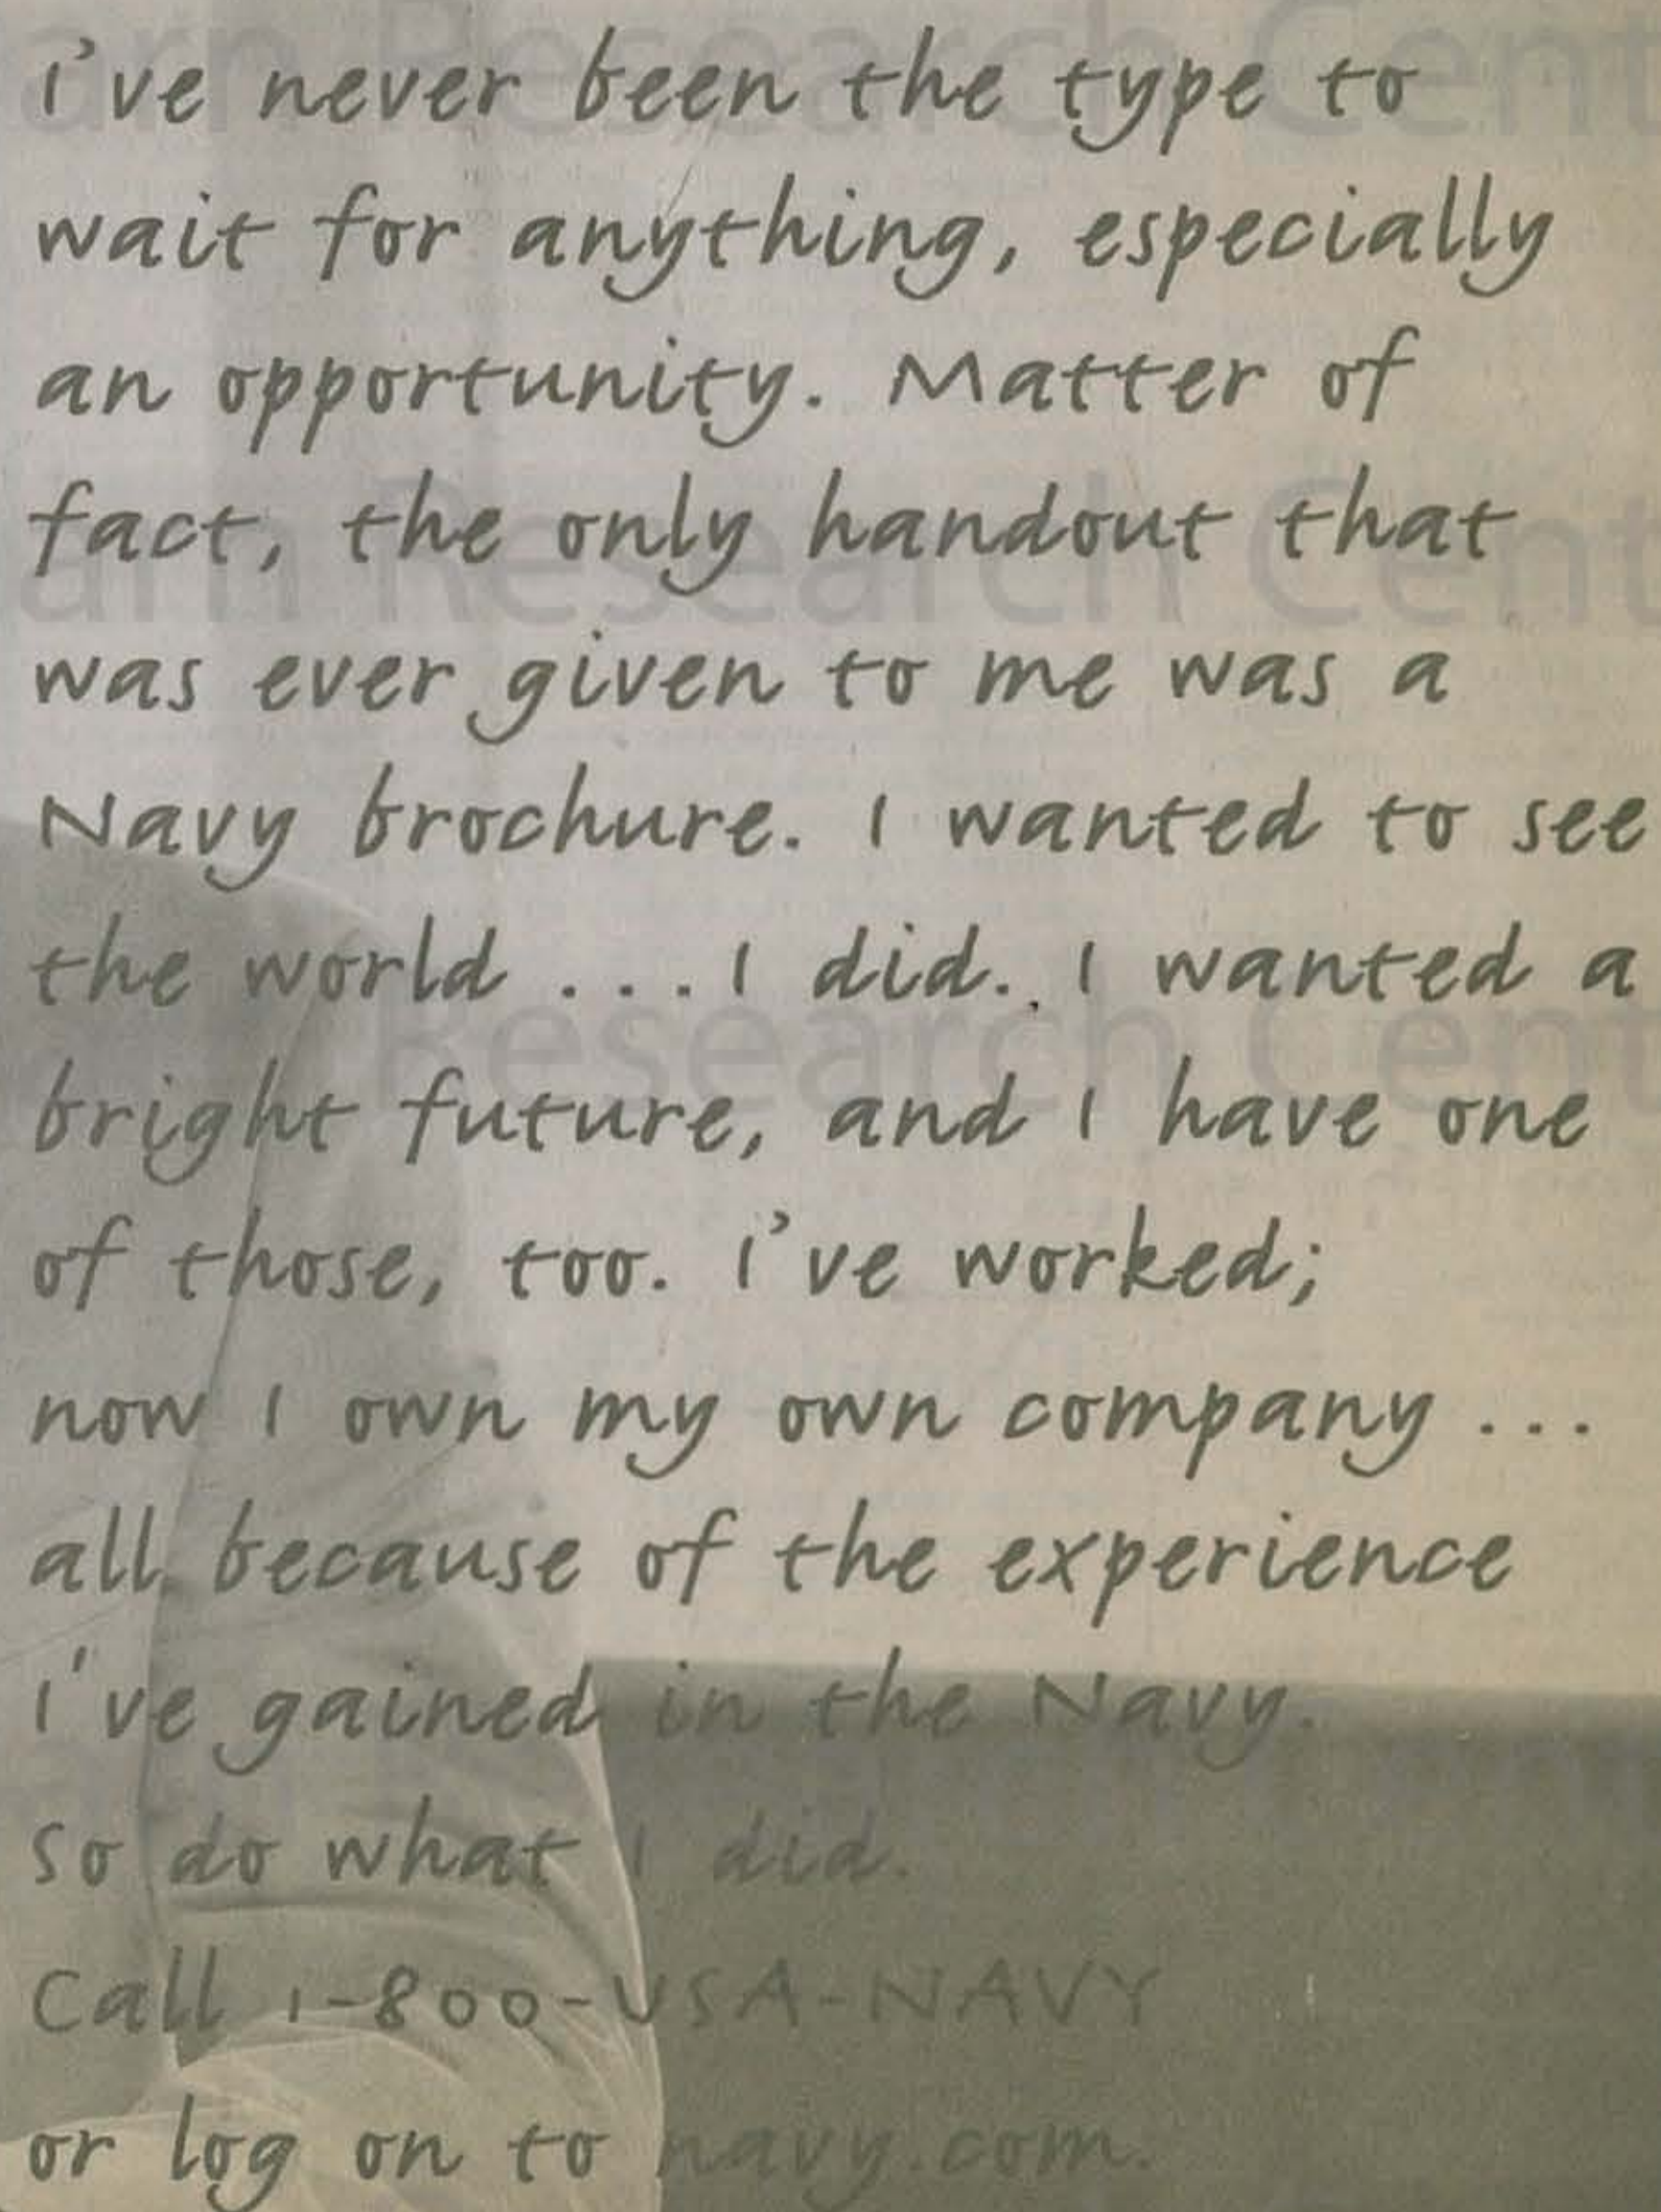 I've never been the type to
wait for anything, especially
an opportunity. Matter of
fact, the only handout that
was ever given to me was a
Navy brochure. I wanted to see
the world ... I did. I wanted a
bright future, and I have one
of those, too. I've worked;
now I own my own company ...
all because of the experience
I've gained in the Navy.
So do what I did.
Call 1-800-USA-NAVY
or log on to navy.com.
arn Research Cent
arn Research Cent
Research Cent